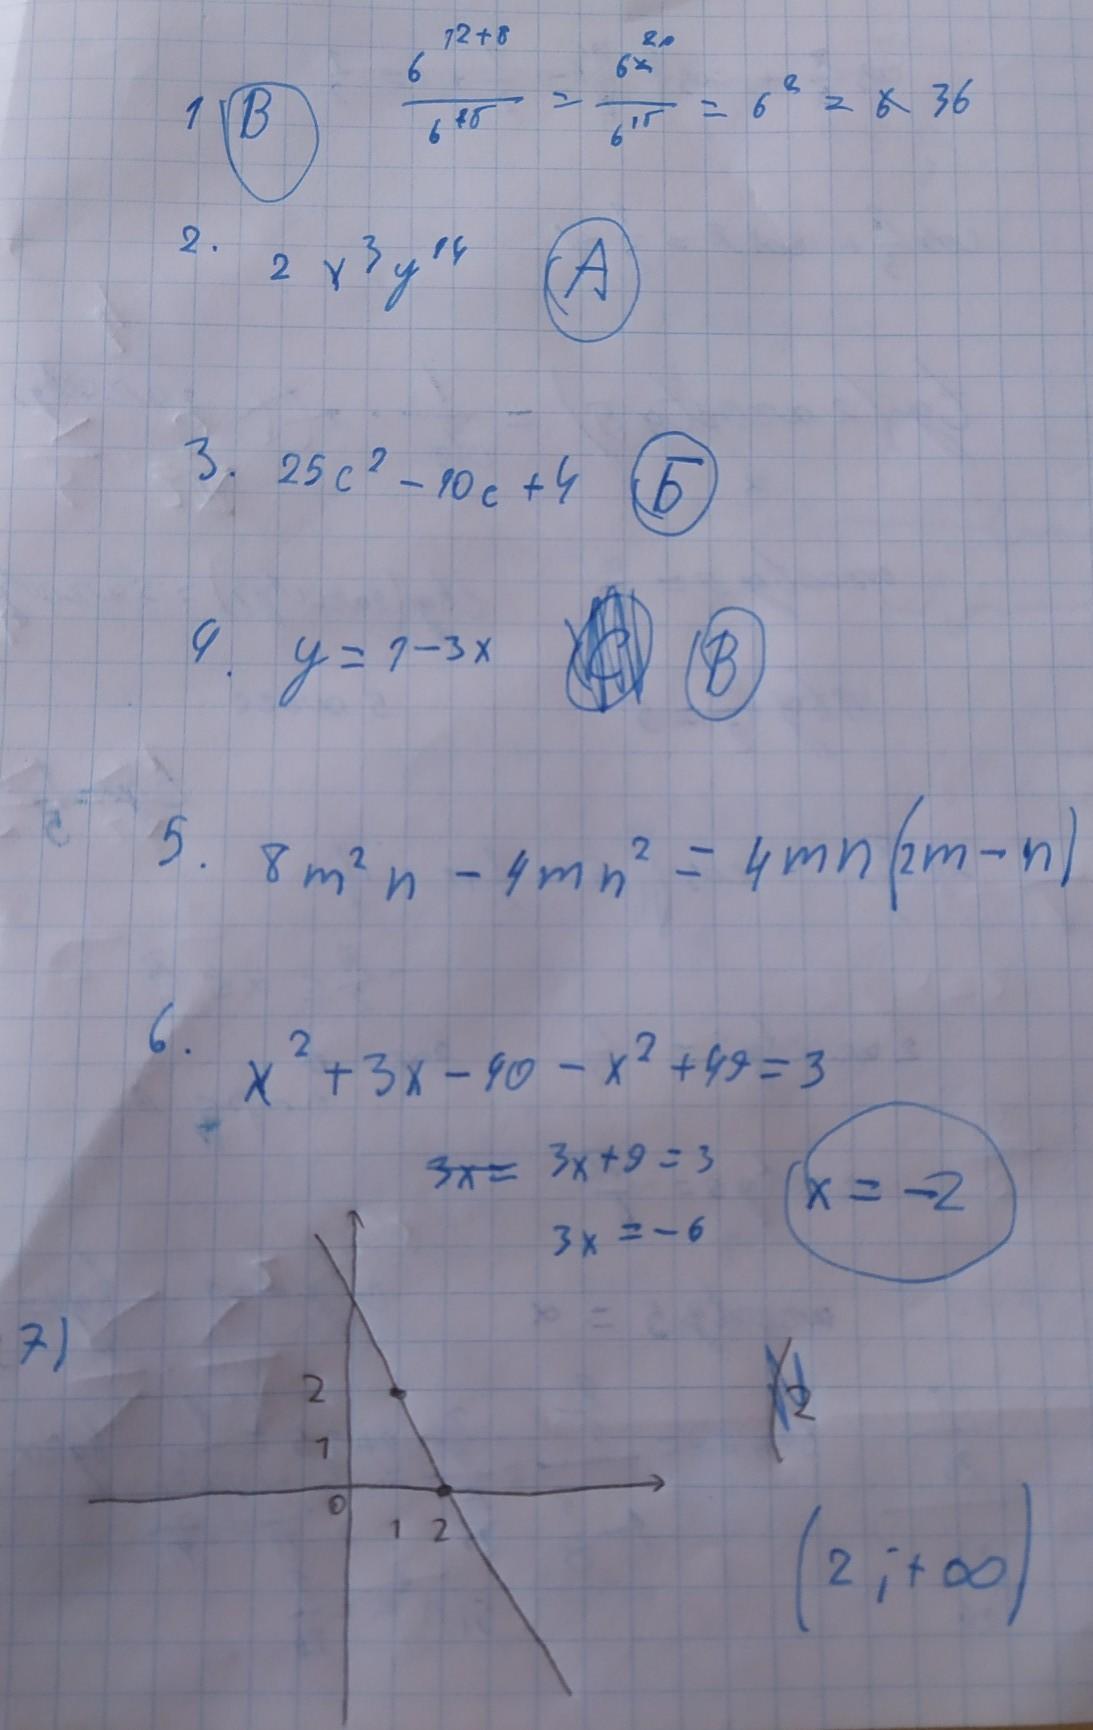 1 В 6^{12+8}/6^{15} = 6^{20}/6^{15} = 6^2 = 36
2. 2x^3y^{14} А
3. 25c^2 - 10c + 4 Б
4. y = 1 - 3x В
5. 8m^2n - 4mn^2 = 4mn(2m - n)
6. x^2 + 3x - 40 - x^2 + 49 = 3
3x + 9 = 3
3x = -6
x = -2
7)
2
1
0
1 2
(2; +∞)